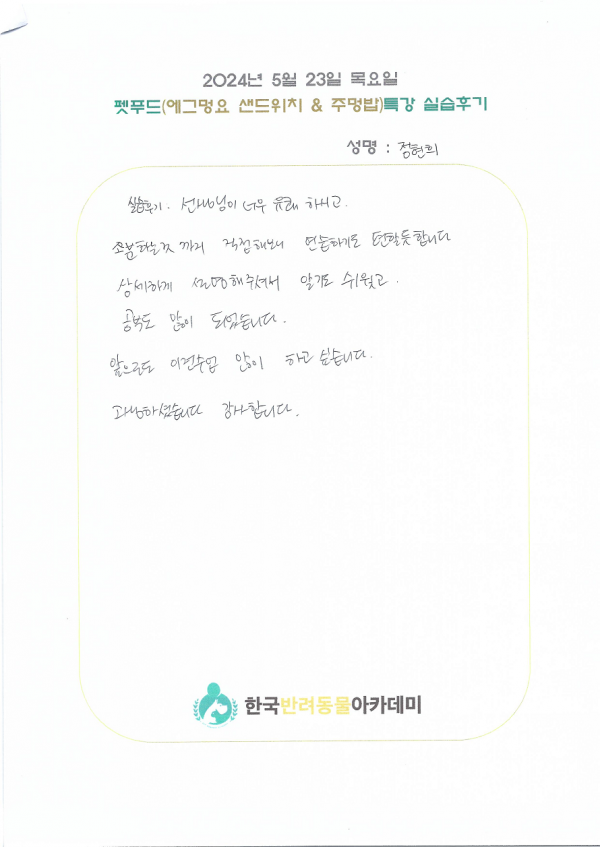 2024년 5월 23일 목요일
펫푸드(에그명요 샌드위치 & 주멍밥)특강 실습후기
성명 : 정현희
실습후기. 선생님이 너무 유쾌 하시고.
소분하는것 까지 직접해보니 연습하기도 편할듯합니다
상세하게 설명해주셔서 알기도 쉬웠고.
공부도 많이 되었습니다.
앞으로도 이런수업 많이 하고 싶습니다.
고생하셨습니다 감사합니다.
한국반려동물아카데미